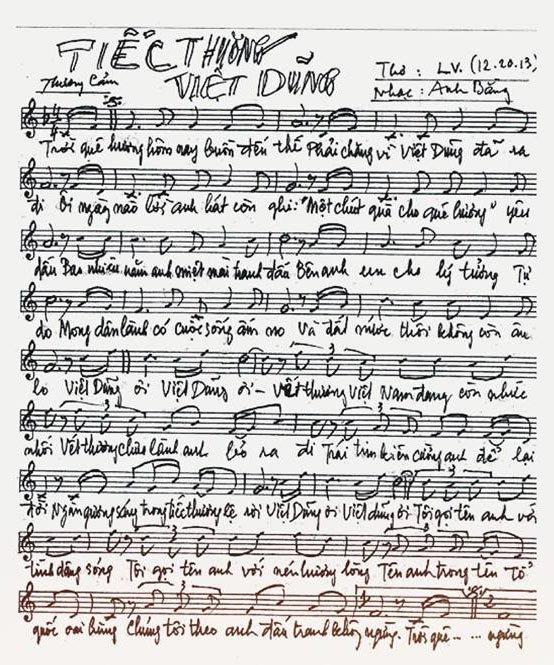 TIẾC THƯƠNG
VIỆT DŨNG
Thương Cảm
Thơ : LV. (12.20.13)
Nhạc : Anh Bằng
Trời quê hương hôm nay buồn đến thế Phải chăng vì Việt Dũng đã ra
đi Ôi ngày nào lời anh hát còn ghi: "Một chút quà cho quê hương" yêu
dấu Bao nhiêu năm anh miệt mài tranh đấu Bên anh em cho lý tưởng Tự
do Mong dân lành có cuộc sống ấm no Và đất nước thôi không còn âu
lo Việt Dũng ơi Việt Dũng ơi - Vết thương Việt Nam đang còn nhức
nhối Vết thương chưa lành anh ra đi Trái tim kiên cường anh để lại
Ngàn gương sáng trong tiếc thương Việt Dũng ơi Việt dũng ơi Tôi gọi tên anh với
linh sông Tôi gọi tên anh với nén hương lòng Tên anh trong tên "Tổ"
quốc oai hùng Chúng tôi theo anh đấu tranh không ngừng. Trời quê - .. ... ngừng